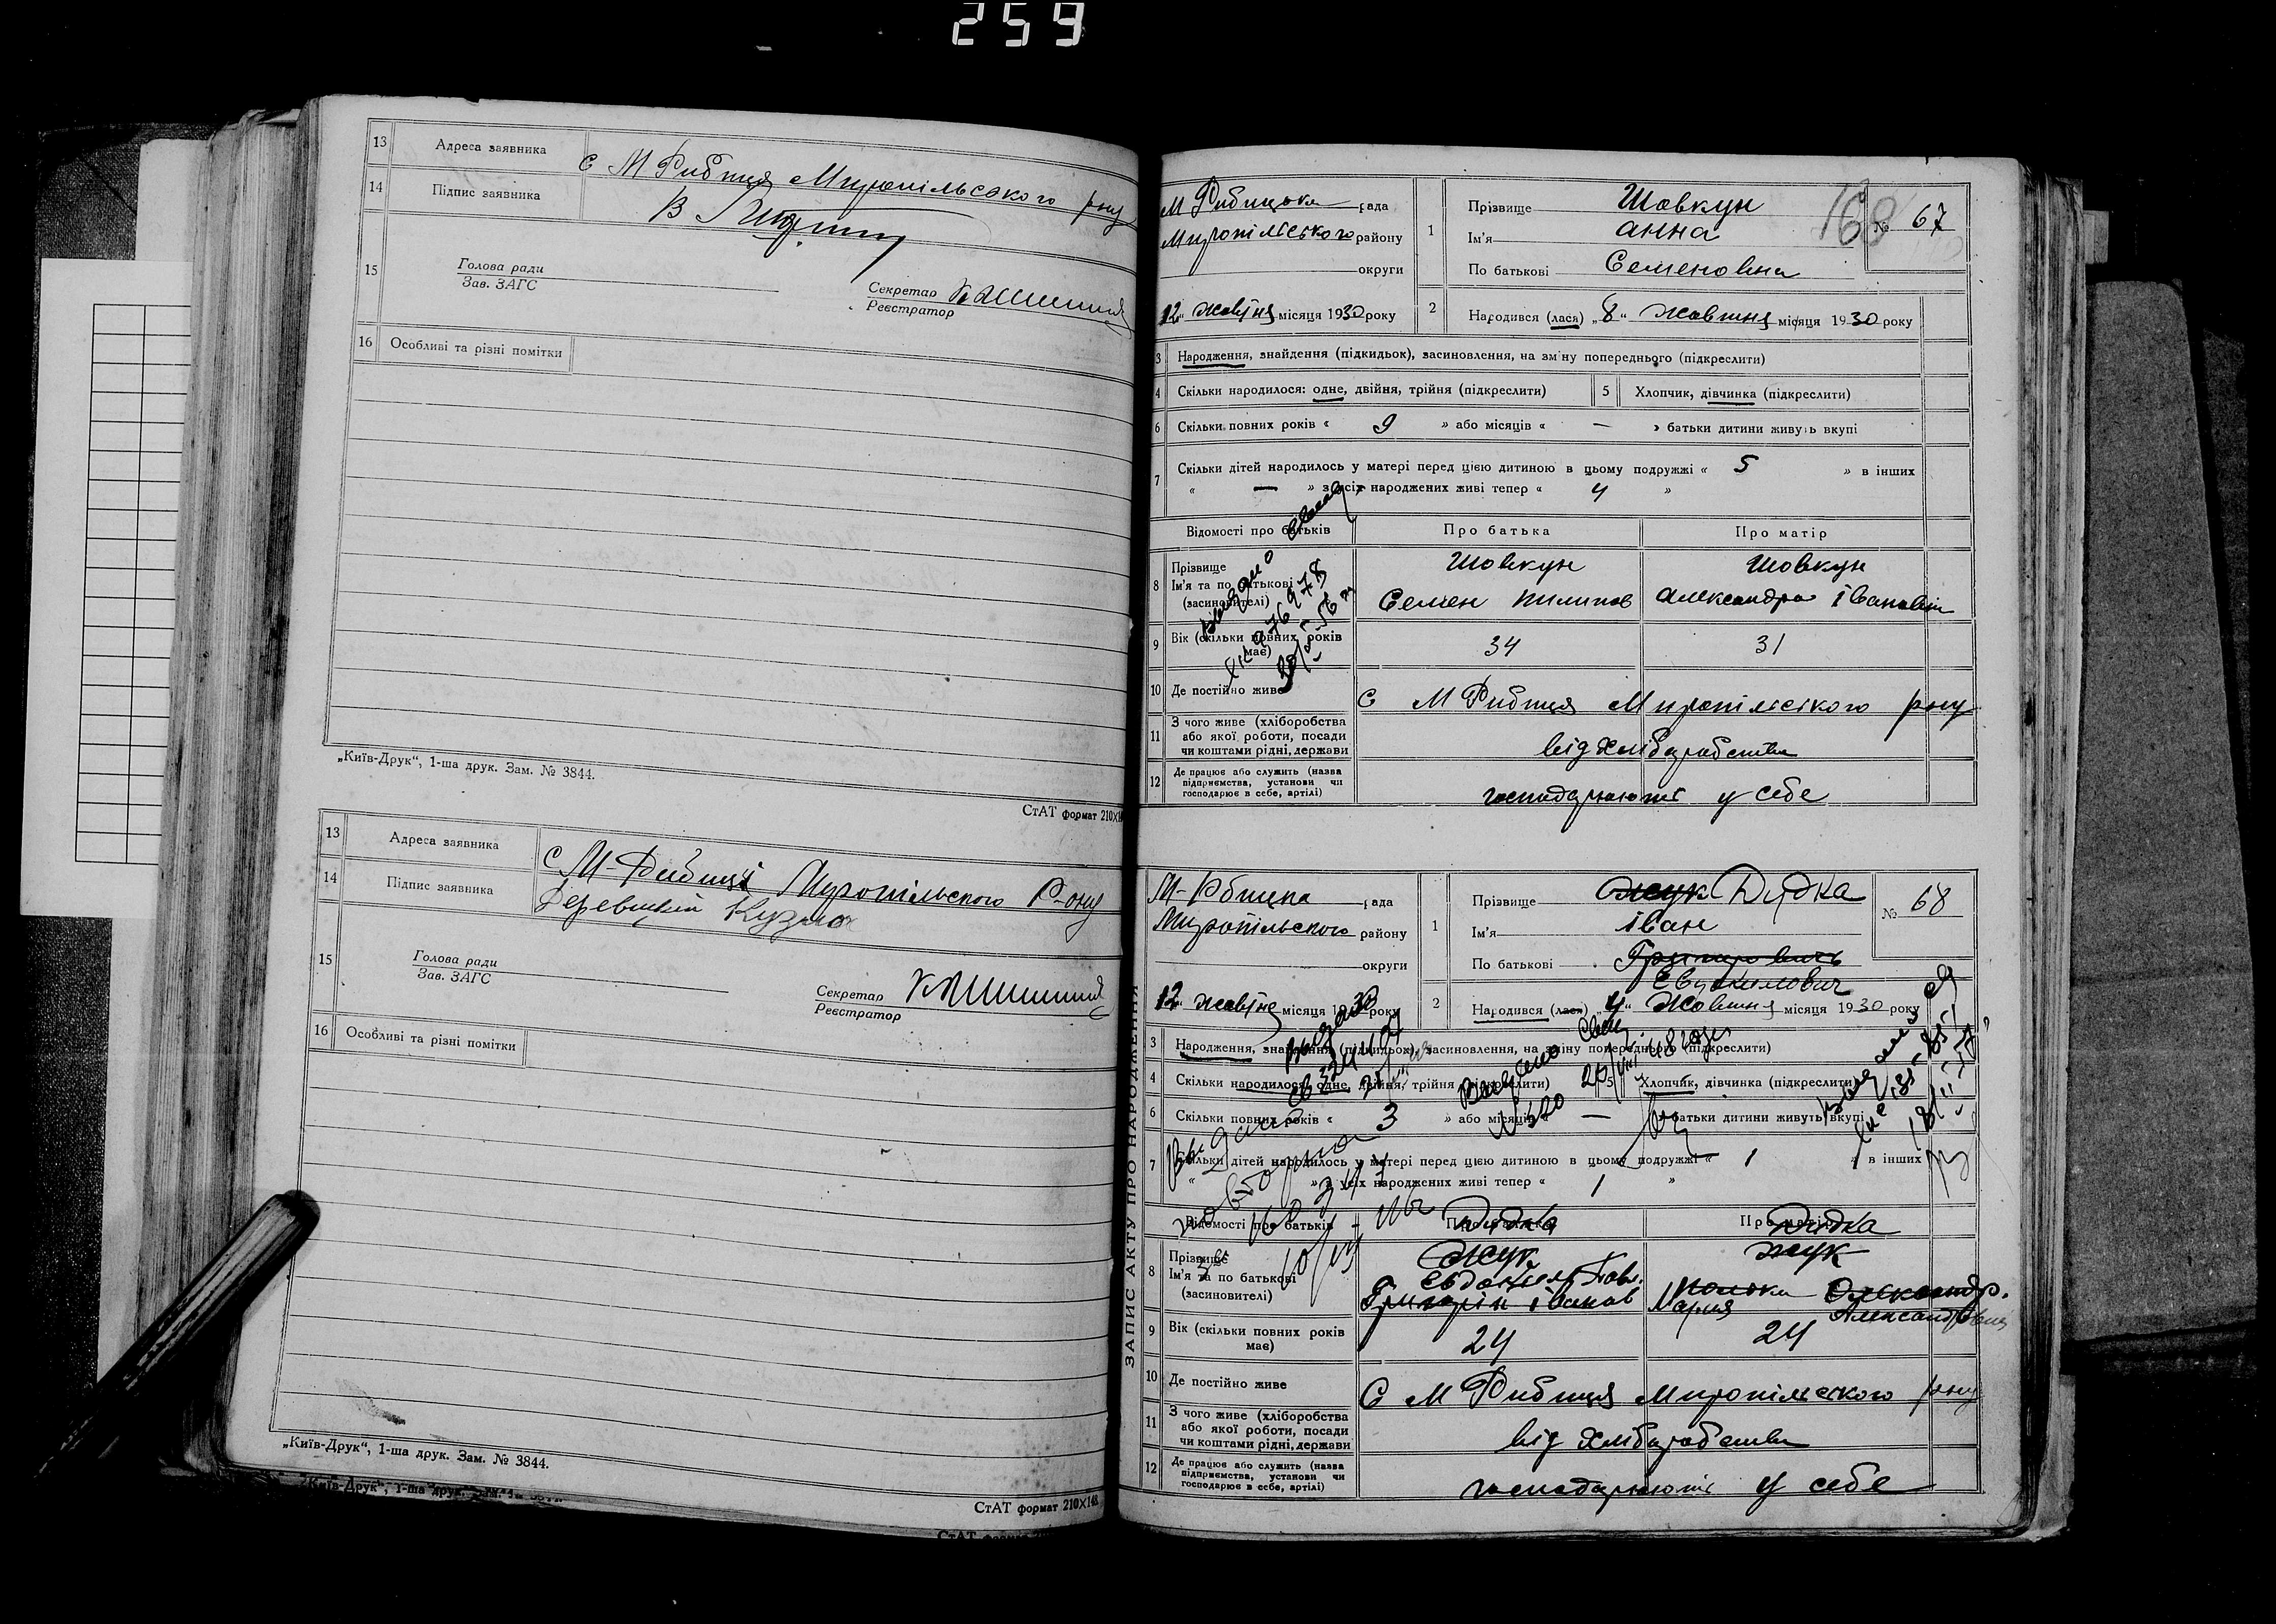 259
13 Адреса заявника С М Рибиця Миропільського р-ну
14 Підпис заявника В
15 Голова ради
Зав. ЗАГС
Секретар
Реєстратор
16 Особливі та різні помітки
„Київ-Друк“, 1-ша друк. Зам. № 3844.
СтАТ формат 210X14
13 Адреса заявника С М-Рибиці Муропільского Р-ону
14 Підпис заявника Кузма
15 Голова ради
Зав. ЗАГС
Секретар
Реєстратор
16 Особливі та різні помітки
„Київ-Друк“, 1-ша друк. Зам. № 3844.
СтАТ формат 210X148
М Рибицька рада
Миропільського району
округи
12 „ жовтня місяця 1930 року
1 Прізвище Шовкун
Ім'я Анна
По батькові Семеновна
168
№ 67
2 Народився (лася) „8“ Жовтня місяця 1930 року
3 Народження, знайдення (підкидьок), засиновлення, на зміну попереднього (підкреслити)
4 Скільки народилося: одне, двійня, трійня (підкреслити) 5 Хлопчик, дівчинка (підкреслити)
6 Скільки повних років « 9 » або місяців « — » батьки дитини живуть вкупі
7 Скільки дітей народилось у матері перед цією дитиною в цьому подружжі « 5 » в інших
« — » з усіх народжених живі тепер « 4 »
Відомості про батьків Про батька Про матір
8 Прізвище
Ім'я та по батькові
(засиновителі)
Шовкун
Семен Пилипов
Шовкун
Александра Івановна
9 Вік (скільки повних років має) 34 31
10 Де постійно живе С М Рибиця Миропільського р-ну
11 З чого живе (хліборобства
або якої роботи, посади
чи коштами рідні, держави
від хліборобства
12 Де працює або служить (назва
підприємства, установи чи
господарює в себе, артілі)
господарюють у себе
М-Рбицка рада
Миропільского району
округи
12 „ жовтня місяця 1930 року
1 Прізвище Жук Дудка
Ім'я Іван
По батькові Григорович
Евдокимович
№ 68
2 Народився (лася) „4“ Жовтня місяця 1930 року
3 Народження, знайдення (підкидьок), засиновлення, на зміну попереднього (підкреслити)
4 Скільки народилося: одне, двійня, трійня (підкреслити) 5 Хлопчик, дівчинка (підкреслити)
6 Скільки повних років « 3 » або місяців « — » батьки дитини живуть вкупі
7 Скільки дітей народилось у матері перед цією дитиною в цьому подружжі « 1 » в інших
« » з усіх народжених живі тепер « 1 »
Відомості про батьків Про батька Про матір
Дудка Дудка
8 Прізвище
Ім'я та по батькові
(засиновителі)
Жук
Григорій Іванов
Жук
Олександр.
Мария Александровна
9 Вік (скільки повних років має) 24 24
10 Де постійно живе С М Рибиця Миропільського р-ну
11 З чого живе (хліборобства
або якої роботи, посади
чи коштами рідні, держави
від хліборобства
12 Де працює або служить (назва
підприємства, установи чи
господарює в себе, артілі)
господарюють у себе
ЗАПИС АКТУ ПРО НАРОДЖЕННЯ